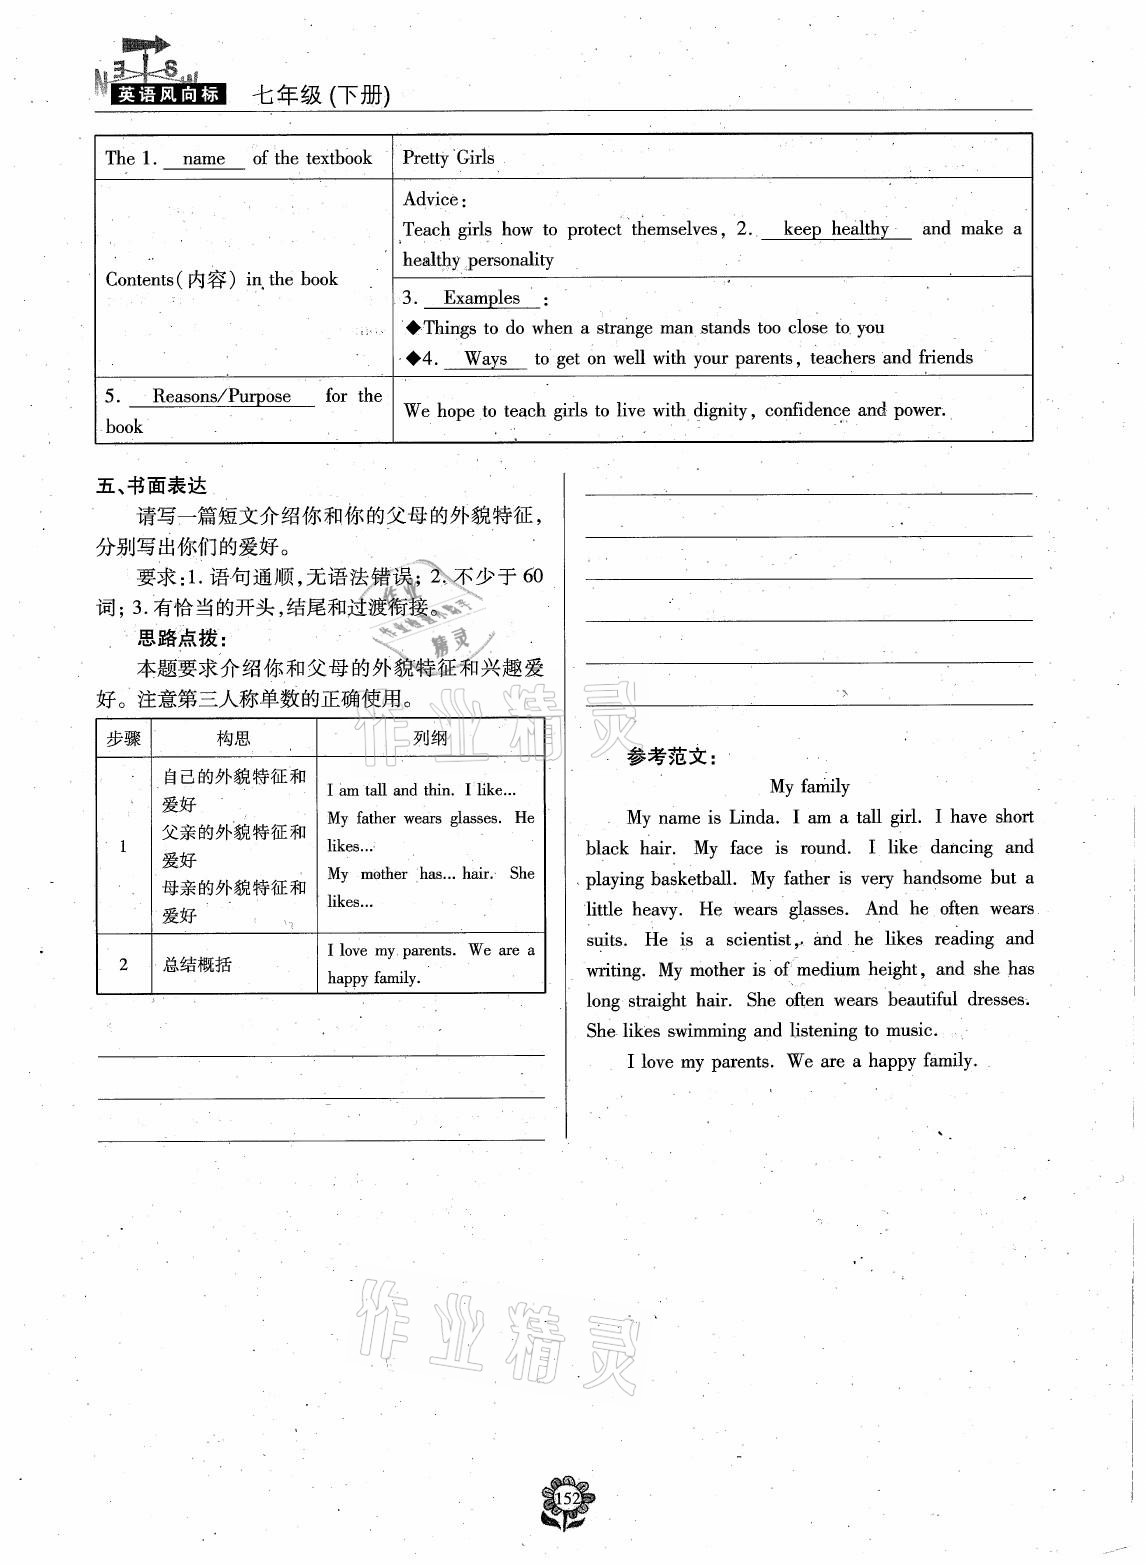 N E S W
英语风向标 七年级(下册)
The 1. name of the textbook
Pretty Girls
Contents(内容) in the book
Advice:
Teach girls how to protect themselves, 2. keep healthy and make a
healthy personality
3. Examples :
◆Things to do when a strange man stands too close to you
◆4. Ways to get on well with your parents, teachers and friends
5. Reasons/Purpose for the
book
We hope to teach girls to live with dignity, confidence and power.
五、书面表达
请写一篇短文介绍你和你的父母的外貌特征,
分别写出你们的爱好。
要求:1. 语句通顺,无语法错误; 2. 不少于 60
词; 3. 有恰当的开头,结尾和过渡衔接。
思路点拨:
本题要求介绍你和父母的外貌特征和兴趣爱
好。注意第三人称单数的正确使用。
步骤 构思 列纲
1
自己的外貌特征和
爱好
父亲的外貌特征和
爱好
母亲的外貌特征和
爱好
I am tall and thin. I like...
My father wears glasses. He
likes...
My mother has... hair. She
likes...
2
总结概括
I love my parents. We are a
happy family.
参考范文:
My family
My name is Linda. I am a tall girl. I have short
black hair. My face is round. I like dancing and
playing basketball. My father is very handsome but a
little heavy. He wears glasses. And he often wears
suits. He is a scientist, and he likes reading and
writing. My mother is of medium height, and she has
long straight hair. She often wears beautiful dresses.
She likes swimming and listening to music.
I love my parents. We are a happy family.
作业
精灵
作业精灵
作业精灵
152